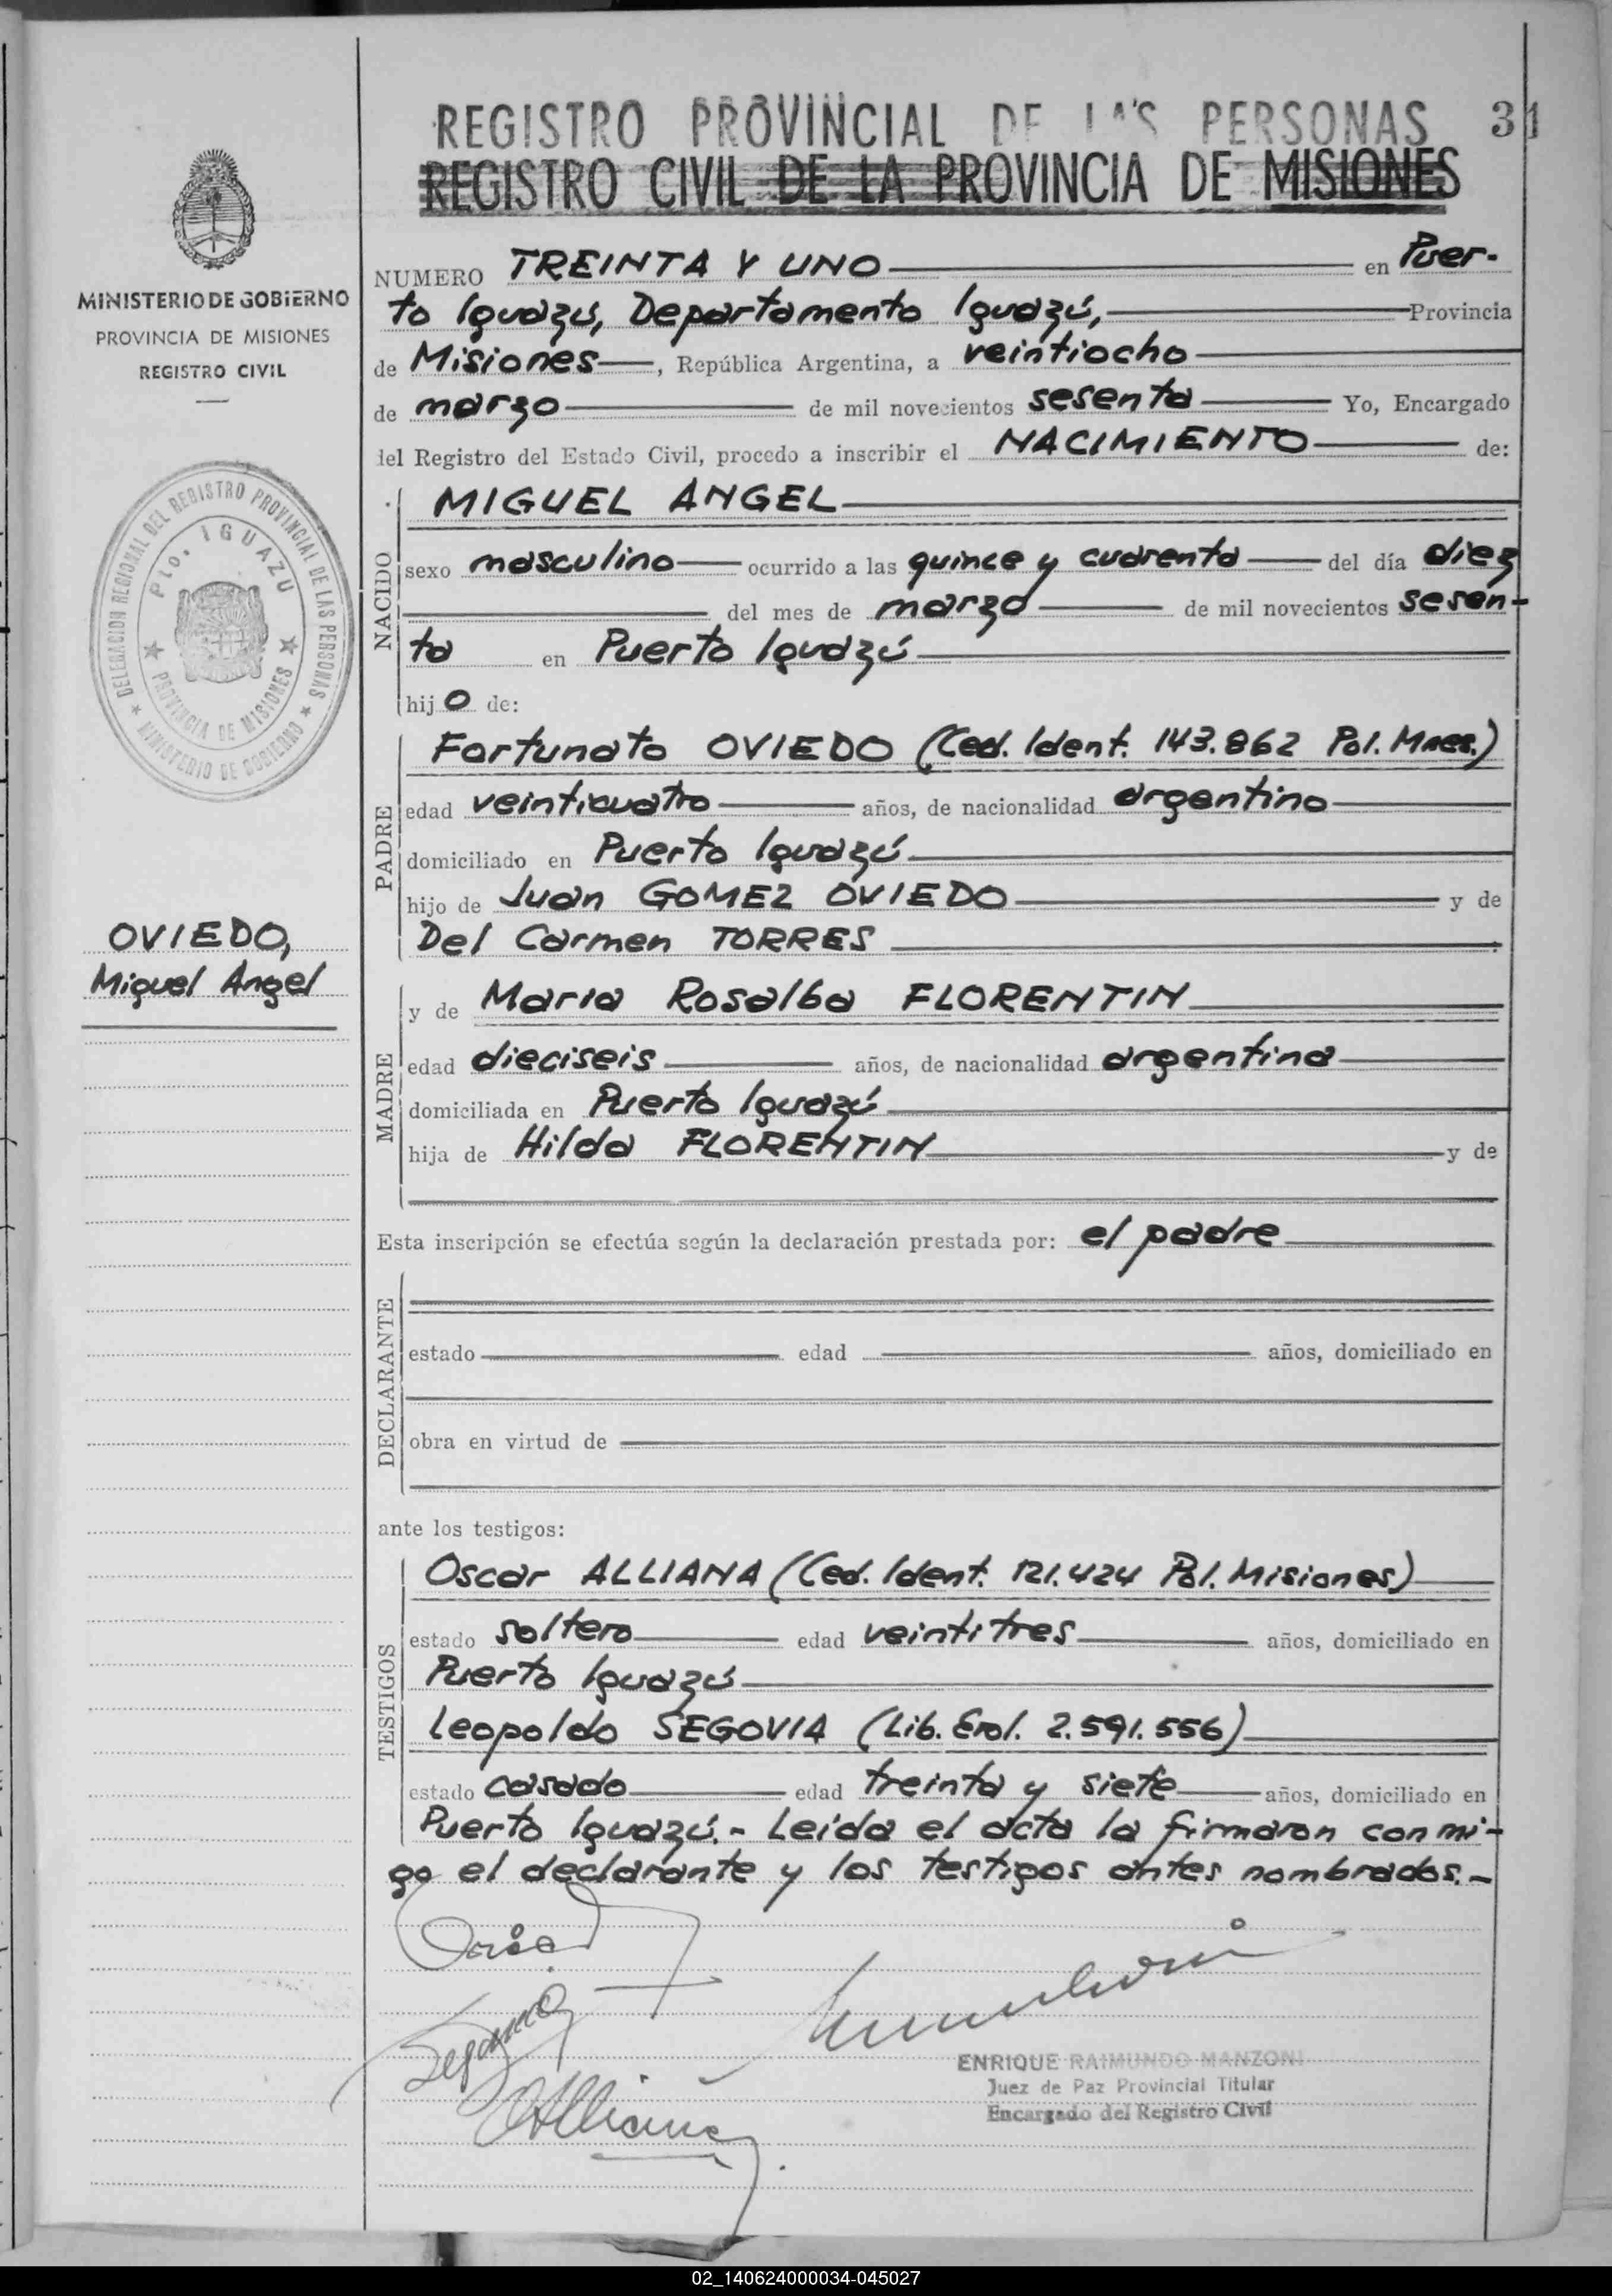 REGISTRO PROVINCIAL DE LAS PERSONAS 31
REGISTRO CIVIL DE LA PROVINCIA DE MISIONES
MINISTERIO DE GOBIERNO
PROVINCIA DE MISIONES
REGISTRO CIVIL
NUMERO TREINTA Y UNO en Puer-
to Iguazú, Departamento Iguazú, Provincia
de Misiones, República Argentina, a veintiocho
de marzo de mil novecientos sesenta Yo, Encargado
del Registro del Estado Civil, procedo a inscribir el NACIMIENTO de:
DELEGACION REGIONAL DEL REGISTRO PROVINCIAL DE LAS PERSONAS
MINISTERIO DE GOBIERNO
Pto. IGUAZU
PROVINCIA DE MISIONES
NACIDO
MIGUEL ANGEL
sexo masculino ocurrido a las quince y cuarenta del día diez
del mes de marzo de mil novecientos sesen-
ta en Puerto Iguazú
hijo de:
PADRE
Fortunato OVIEDO (Ced. Ident. 143.862 Pol. Mnes.)
edad veinticuatro años, de nacionalidad argentino
domiciliado en Puerto Iguazú
hijo de Juan GOMEZ OVIEDO y de
Del Carmen TORRES
OVIEDO,
Miguel Angel
MADRE
y de Maria Rosalba FLORENTIN
edad dieciseis años, de nacionalidad argentina
domiciliada en Puerto Iguazú
hija de Hilda FLORENTIN y de
Esta inscripción se efectúa según la declaración prestada por: el padre
DECLARANTE
estado edad años, domiciliado en
obra en virtud de
ante los testigos:
TESTIGOS
Oscar ALLIANA (Ced. Ident. 121.424 Pol. Misiones)
estado soltero edad veintitres años, domiciliado en
Puerto Iguazú
Leopoldo SEGOVIA (Lib. Enrol. 2.591.556)
estado casado edad treinta y siete años, domiciliado en
Puerto Iguazú.- Leida el acta la firmaron conmi-
go el declarante y los testigos antes nombrados.-
Segovia
OAlliana
ENRIQUE RAIMUNDO MANZONI
Juez de Paz Provincial Titular
Encargado del Registro Civil
02_140624000034-045027